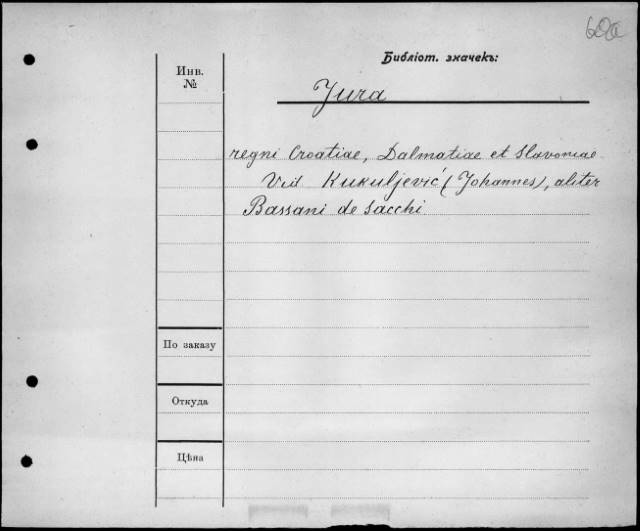 60a
Библіот. значекъ:
Инв.
№
Jura
regni Croatiae, Dalmatiae et Slavoniae
Vid Kukuljević (Johannes), aliter
Bassani de Sacchi
По заказу
Откуда
Цѣна